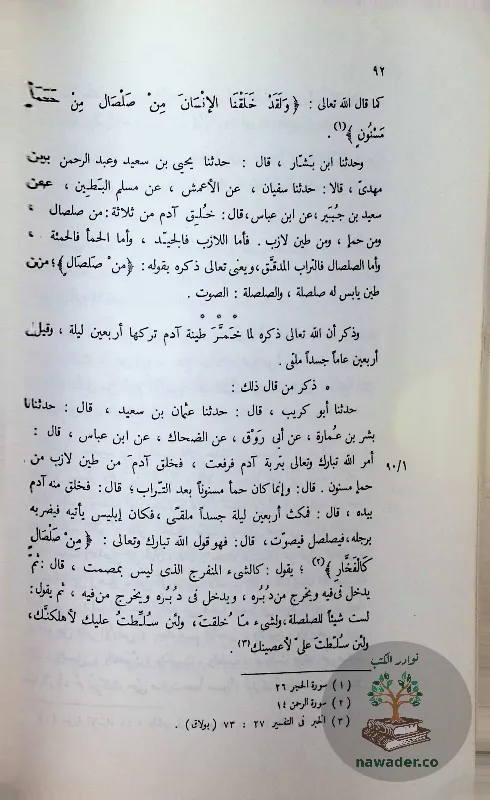 ٩٢
كما قال الله تعالى : ﴿ وَلَقَدْ خَلَقْنَا الإنْسَانَ مِنْ صَلْصَال مِنْ حَمَإٍ
مَسْنُونٍ ﴾(١) .
وحدثنا ابن بشّار ، قال : حدثنا يحيى بن سعيد وعبد الرحمن بن
مهدىّ ، قالا : حدثنا سفيان ، عن الأعمش ، عن مسلم البَطِين ، عن
سعيد بن جُبَير، عن ابن عباس، قال: خُلِق آدم من ثلاثة: من صلصال ،
ومن حمإ ، ومن طين لازب . فأما اللازب فالجيّد ، وأما الحمأ فالحمئة ،
وأما الصلصال فالتراب المدقَّق، ويعنى تعالى ذكره بقوله: ﴿مِنْ صَلصَال﴾؛ من
طين يابس له صلصلة ، والصلصلة : الصوت .
وذكر أن الله تعالى ذكره لما خَمَّرَ طينة آدم تركها أربعين ليلة ، وقيل
أربعين عاماً جسداً ملقى .
ه ذكر من قال ذلك :
حدثنا أبو كريب ، قال : حدثنا عثمان بن سعيد ، قال : حدثنا
بشر بن عُمارة، عن أبى رَوْق ، عن الضحاك ، عن ابن عباس ، قال :
أمر الله تبارك وتعالى بتربة آدم فرفعت ، فخلق آدم َ من طين لازب من
٩٠/١
حمإ مسنون . قال: وإنما كان حمأ مسنوناً بعد التراب؛ قال: فخلق منه آدم
بيده ، قال : فمكث أربعين ليلة جسداً ملقًى، فكان إبليس يأتيه فيضربه
برجله، فيصلصل فيصوّت، قال: فهو قول الله تبارك وتعالى : ﴿ مِنْ صَلْصَال
كَالْفَخَّارِ ﴾(٢) ؛ يقول : كالشىء المنفرج الذى ليس بمصمت ، قال : ثمّ
يدخل فى فيه ويخرج من دُبُره ، ويدخل فى دُبُره ويخرج من فيه ، ثم يقول:
لست شيئاً للصلصلة، ولشىء مّا خُلقتَ، ولئن سُلِّطتُ عليك لأهلكنَّك،
ولئن سُلِّطتَ علىّ لأعصينك(٣).
(١) سورة الحجر ٢٦
(٢) سورة الرحمن ١٤
(٣) الخبر فى التفسير ٢٧ : ٧٣ (بولاق) .
نوادر الكتب
nawader.co